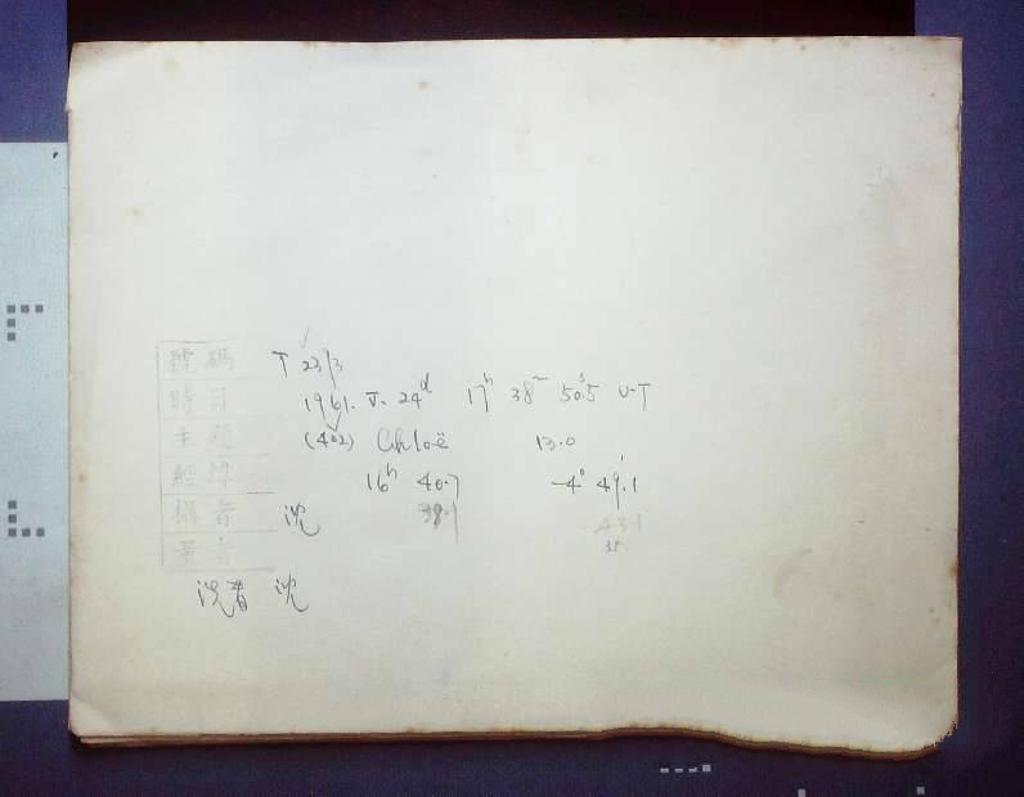 號碼 T 2313
時日 1961. V. 24d 17h 38m 50s.5 U.T
主題 (402) Chloë 13.0
經緯 16h 40.7 -4° 49'.1
攝者 沈 38.1 43.1
38
洗者 沈